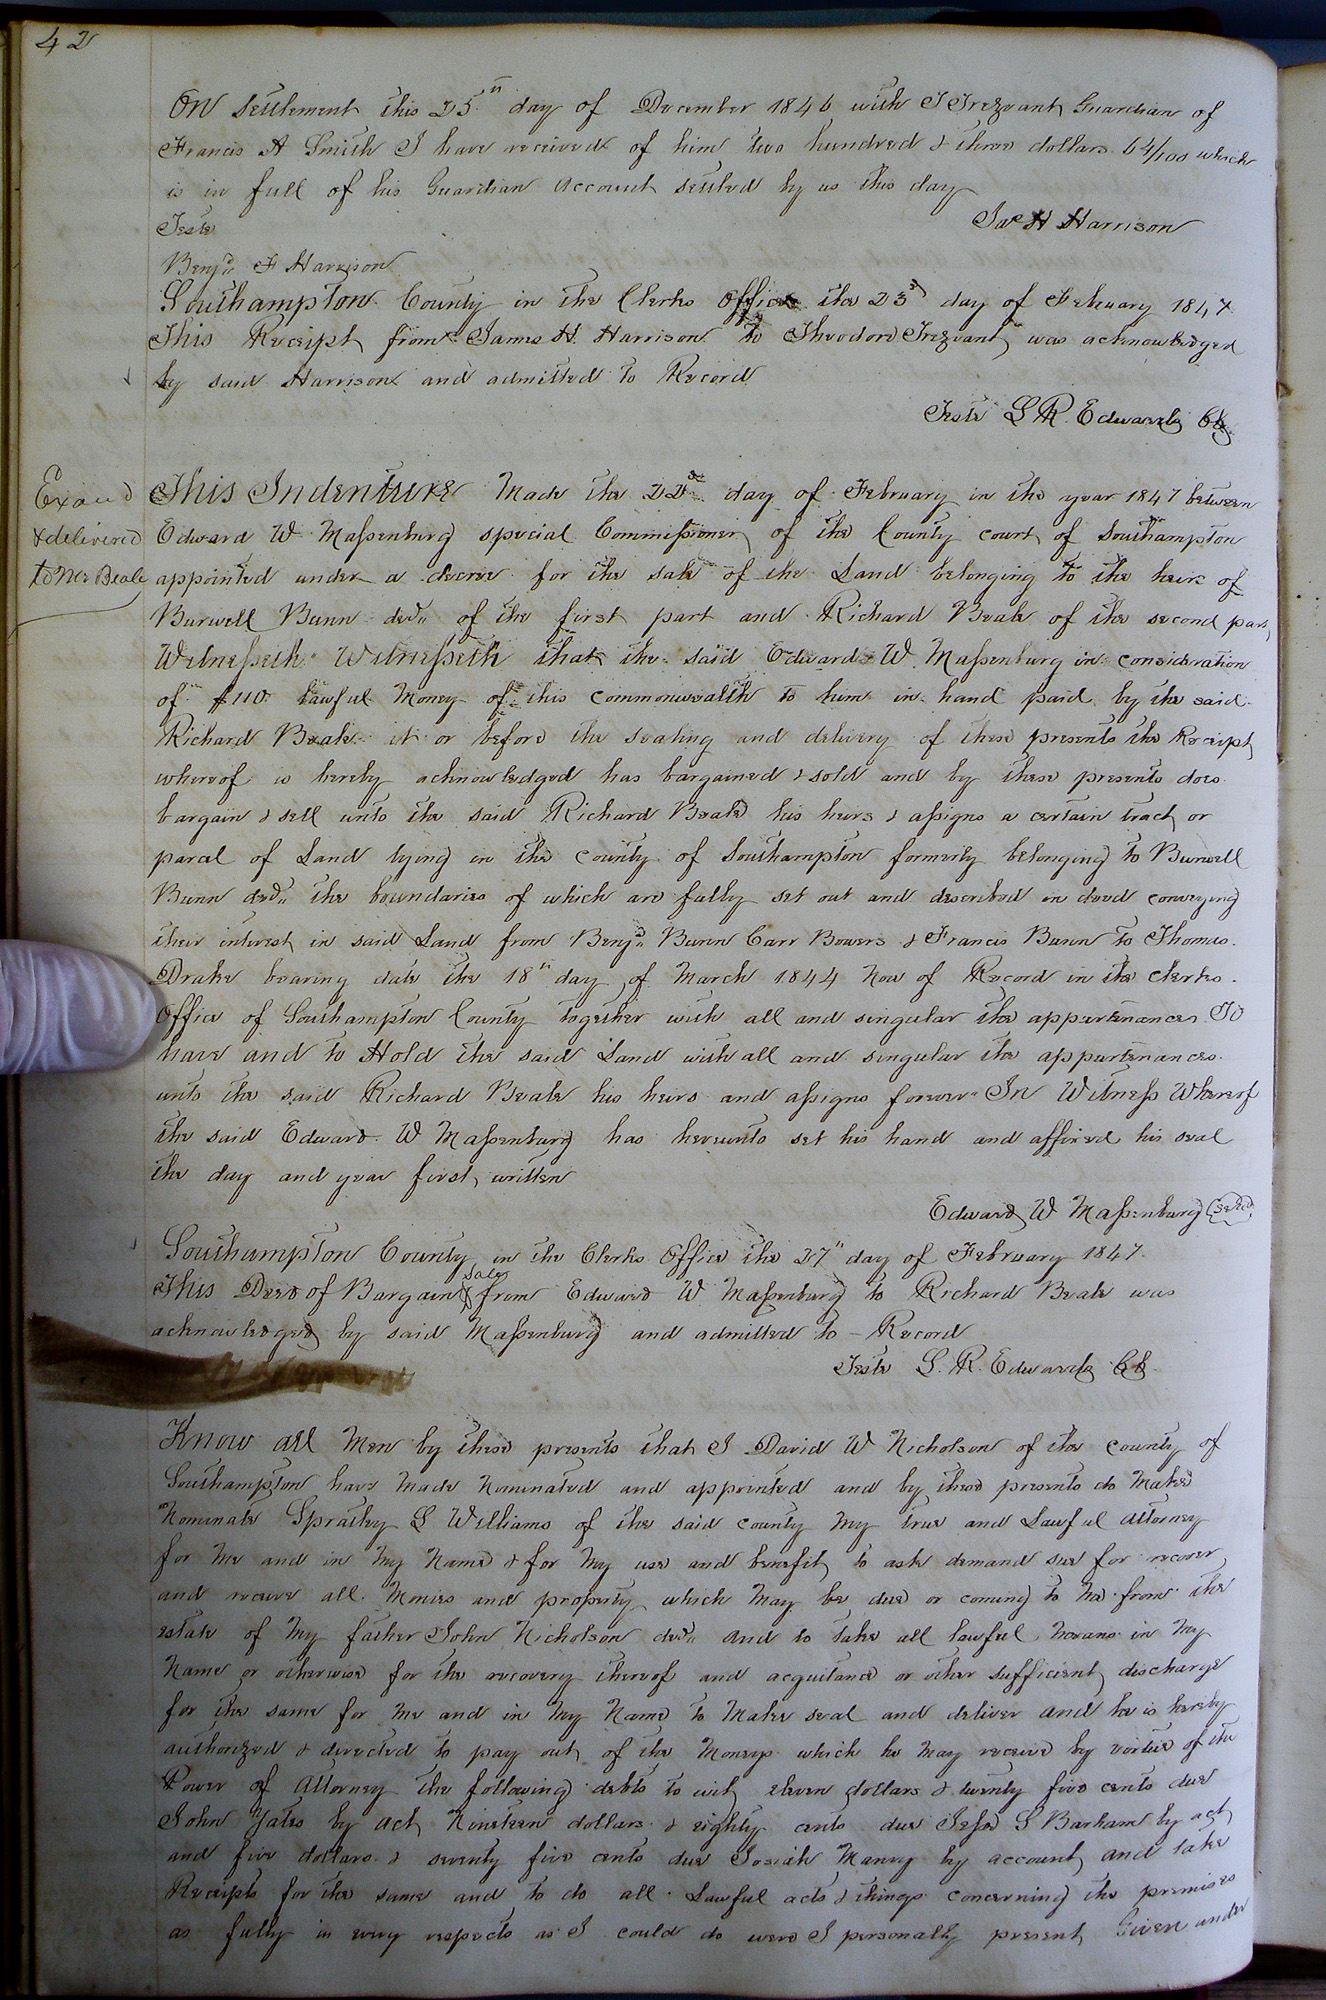 42
On Settlement this 25th day of December 1846 with T Trezvant Guardian of
Francis A Smith I have received of him two hundred & three dollars 64/100 which
is in full of his Guardian Account settled by us this day
Teste
Jas H Harrison
Benjn F Harrison
Southampton County in the Clerks Office the 23d day of February 1847
This Receipt from James H. Harrison to Theodore Trezvant was acknowledged
by said Harrison and admitted to Record
Teste L R. Edwards Ck
Exa d
& delivered
to Mr Beale
This Indenture Made the 22d day of February in the year 1847 between
Edward W Massenburg special Commissioner of the County court of Southampton
appointed under a decree for the sale of the Land belonging to the heirs of
Burwell Bunn decd of the first part and Richard Beale of the second part
Witnesseth Witnesseth that the said Edward W. Massenburg in consideration
of $110 lawful Money of this commonwealth to him in hand paid by the said
Richard Beale it or before the sealing and delivery of these presents the Receipt
whereof is hereby acknowledged has bargained & sold and by these presents does
bargain & sell unto the said Richard Beale his heirs & assigns a certain tract or
parcel of Land lying in the County of Southampton formerly belonging to Burwell
Bunn decd the boundaries of which are fully set out and described in deed conveying
their interest in said Land from Benjn Bunn Carr Bowers & Francis Bunn to Thomas
Drake bearing date the 18th day of March 1844 Now of Record in the Clerks
Office of Southampton County together with all and singular the appurtenances To
have and to Hold the said Land with all and singular the appurtenances
unto the said Richard Beale his heirs and assigns forever In Witness Whereof
the said Edward W Massenburg has hereunto set his hand and affixed his seal
the day and year first written
Edward W Massenburg Seal
Southampton County in the Clerks Office the 27th day of February 1847
This Deed of Bargain & Sale from Edward W Massenburg to Richard Beale was
acknowledged by said Massenburg and admitted to Record
Teste L. R. Edwards Ck.
Know all Men by these presents that I David W Nicholson of the county of
Southampton have Made Nominated and appointed and by these presents do Make
Nominate Spratley L Williams of the said county My true and Lawful Attorney
for Me and in My Name & for My use and benefit to ask demand sue for recover
and receive all Monies and property which May be due or coming to Me from the
estate of My father John Nicholson decd and to take all lawful Means in My
Name or otherwise for the recovery thereof and acquitance or other sufficient discharge
for the same for Me and in My Name to Make seal and deliver and he is hereby
authorized & directed to pay out of the Moneys which he May receive by virtue of the
Power of Attorney the following debts to wit eleven dollars & twenty five cents due
John Yates by act Nineteen dollars & eighty cents due Jesse S Barham by act
and five dollars & seventy five cents due Josiah Manry by account and take
Receipts for the same and to do all Lawful acts & things concerning the premises
as fully in every respects as I could do were I personally present Given under